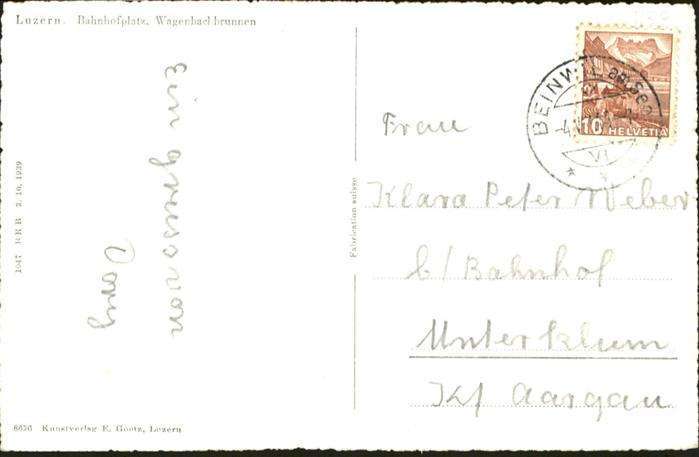 Luzern. Bahnhofplatz, Wagenbachbrunnen
Ein Gruss von
1047 RRB 3. 10. 1939
Fabrication suisse
BEINWIL a/See
VI
10 HELVETIA
Frau
Klara Peter Weber
b/Bahnhof
Unterkulm
Kt Aargau
8676 Kunstverlag E. Goetz, Luzern